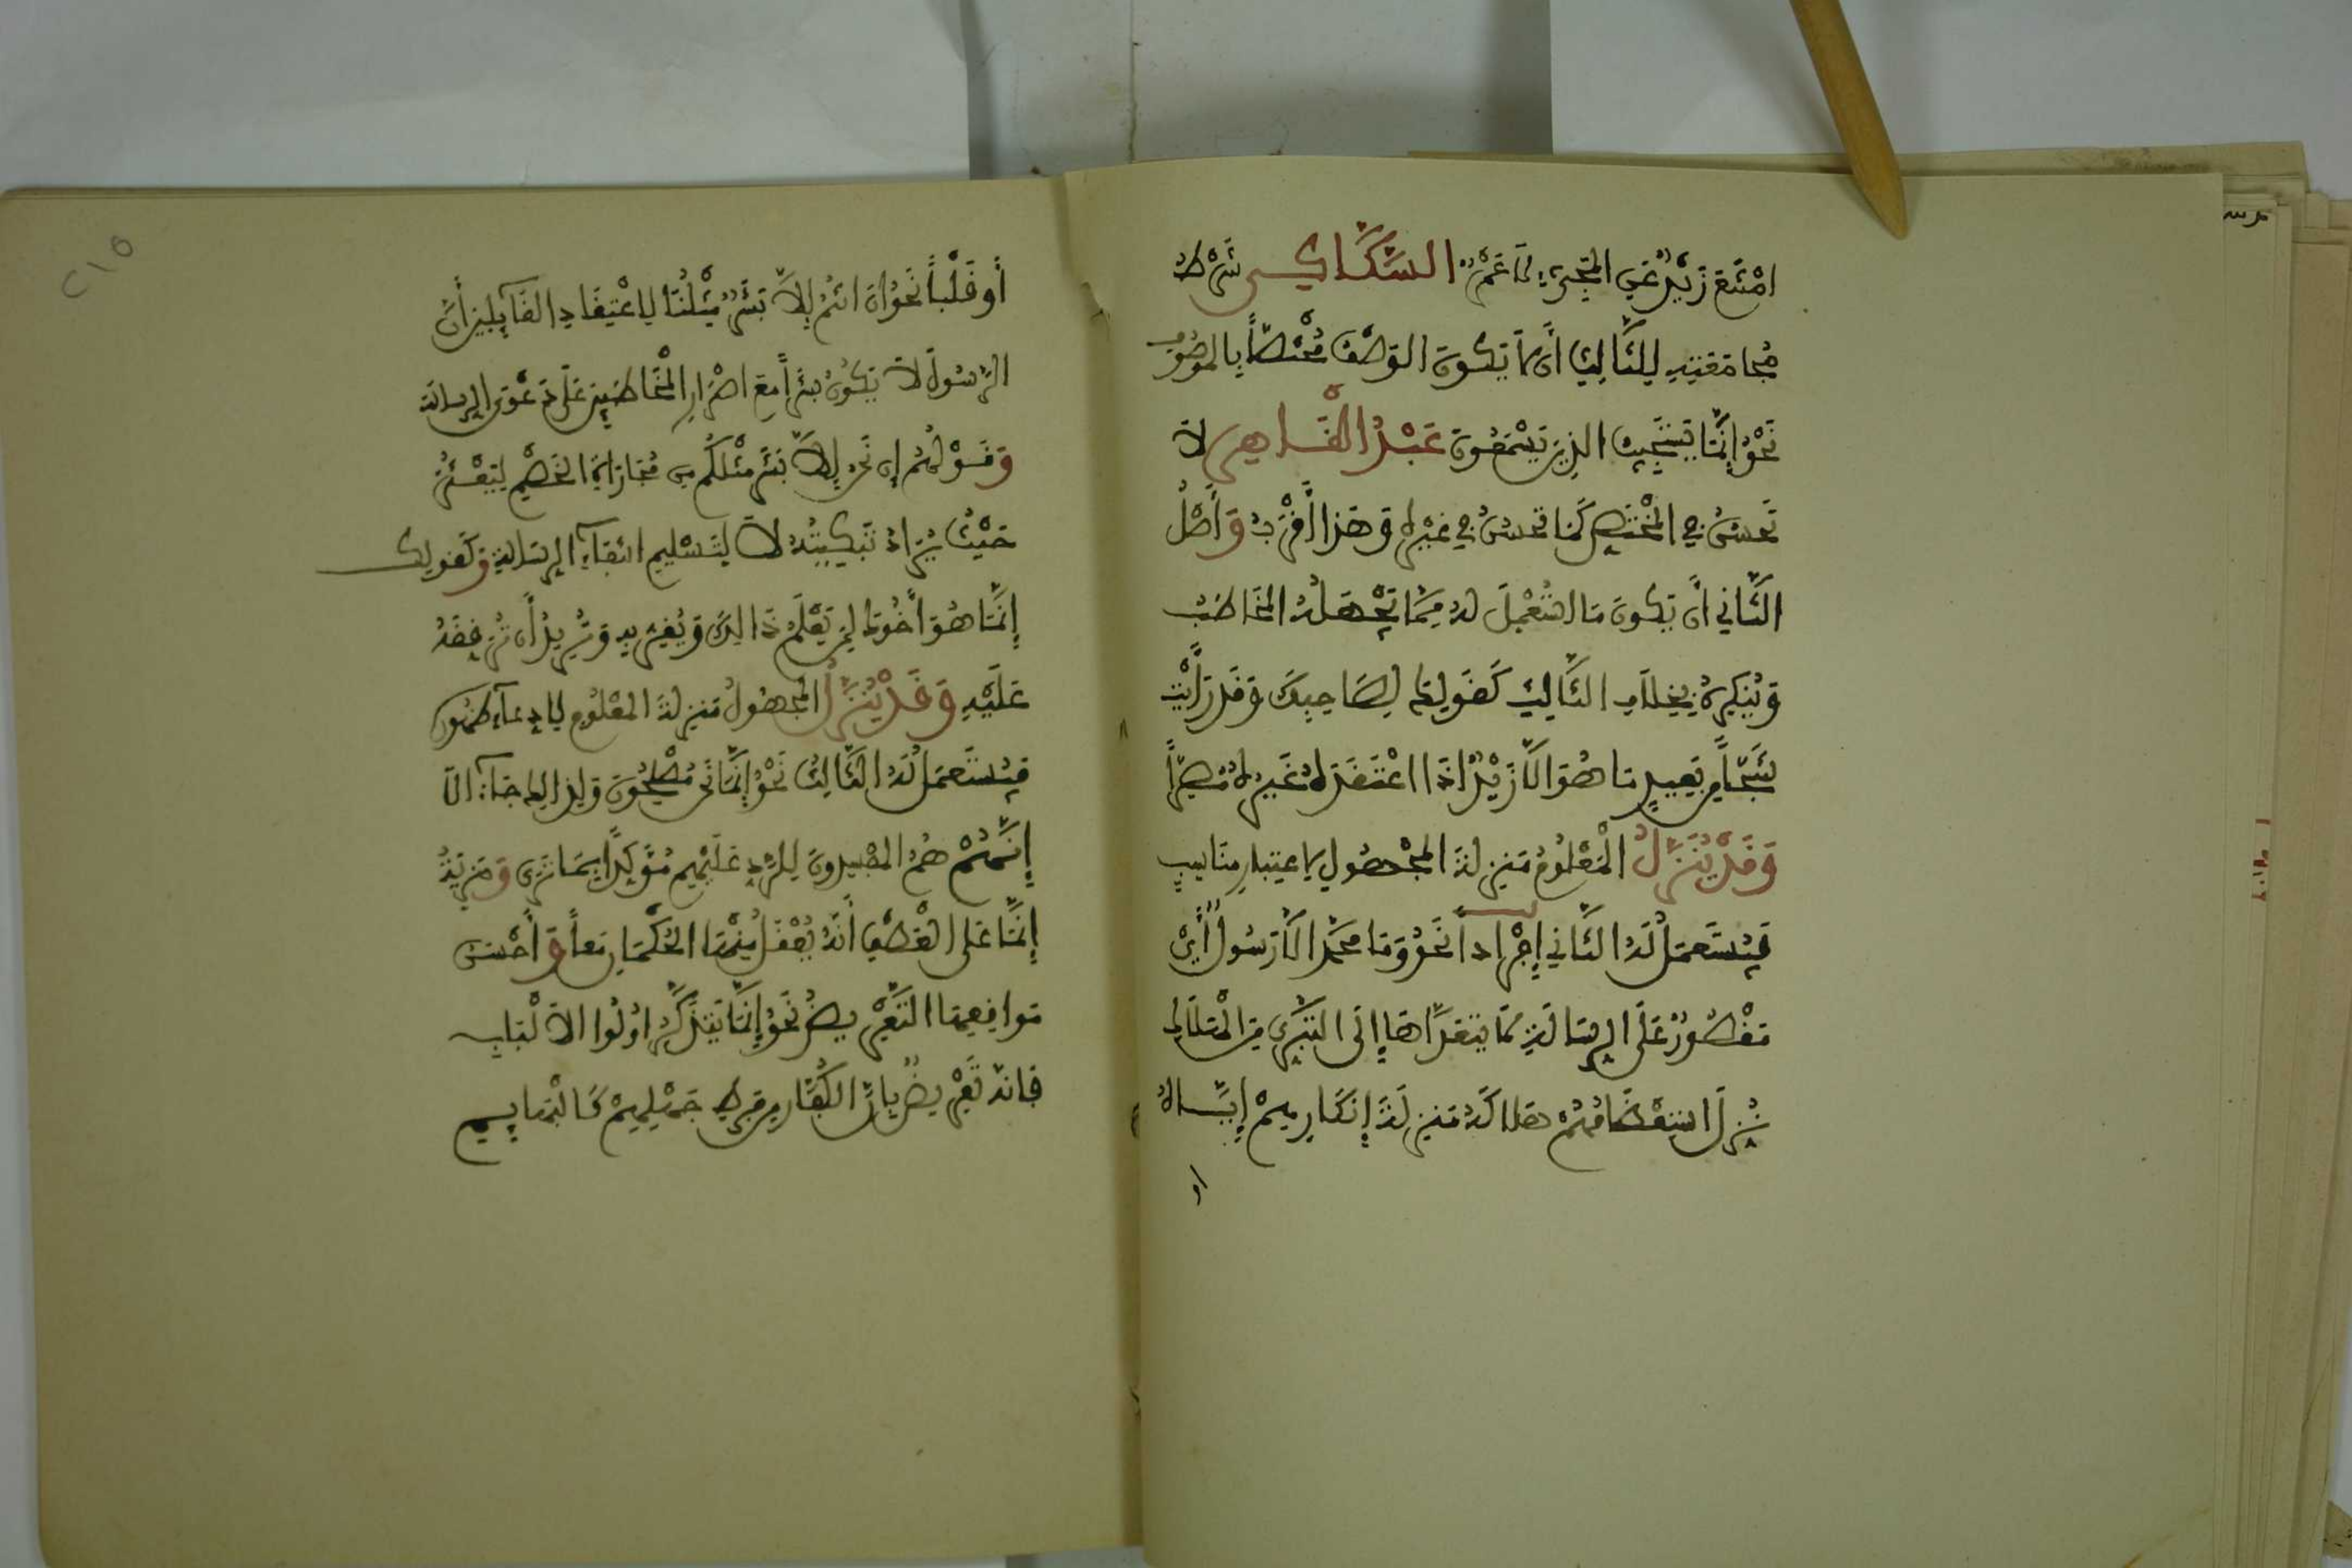 امْتَنَعَ زَيْدٌ عَنِ المَجِيءِ لَا عَمْرٌو السَّكَّاكِي شَرْطُ
مُجَامَعَتِهِ لِلثَّالِثِ أَن لَّا يَكُونَ الوَصْفُ مُخْتَصّاً بِالمَوْصُوفِ
نَحْوُ إِنَّمَا يَسْتَجِيبُ الذِينَ يَسْمَعُونَ عَبْدُ القَاهِرِ لَا
تَحْسُنُ فِي المُخْتَصِّ كَمَا تَحْسُنُ فِي غَيْرِهِ وَهَذَا أَقْرَبُ وَأَصْلُ
الثَّانِي أَن يَكُونَ مَا اسْتُعْمِلَ لَهُ مِمَّا يَجْهَلُهُ المُخَاطَبُ
وَيُنكِرُهُ بِخِلَافِ الثَّالِثِ كَقَوْلِكَ لِصَاحِبِكَ وَقَد رَّأَيْتَ
شَبَحاً مِن بَعِيدٍ مَا هُوَ الَّا زَيْدٌ اذَا اعْتَقَدَهُ غَيْرَهُ مُصِرّاً
وَقَدْ يُنَزَّلُ المَعْلُومُ مَنزِلَةَ المَجْهُولِ لِاعْتِبَارٍ مُنَاسِبٍ
فَيُسْتَعْمَلُ لَهُ الثَّانِي إِفْرَاداً نَحْوُ وَمَا مُحَمَّدٌ الَّا رَسُولٌ أَيْ
مَقْصُورٌ عَلَى الرِّسَالَةِ لَا يَتَعَدَّاهَا إِلَى التَّبَرِّي مِنَ الْهَلَاكِ
نُزِّلَ اسْتِعْظَامُهُمْ هَلَاكَهُ مَنزِلَةَ إِنكَارِهِمْ إِيَّاهُ
أو
٢١٥
أَو قَلْباً نَحْوُ ان انتُمُ إِلَّا بَشَرٌ مِّثْلُنَا لِاعْتِقَادِ القَائِلِينَ أَنَّ
الرَّسُولَ لَا يَكُونُ بَشَراً مَعَ اصْرَارِ المُخَاطَبِينَ عَلَى دَعْوَى الرِّسَالَةِ
وَقَوْلُهُمُ إِن نَّحْنُ إِلَّا بَشَرٌ مِثْلُكُم مِن مُجَارَاةِ الخَصْمِ لِيَعْثُرَ
حَيْثُ يُرَادُ تَبْكِيتُهُ لَا لِتَسْلِيمِ انتِفَاءِ الرِّسَالَةِ وَكَقَوْلِكَ
إِنَّمَا هُوَ أَخُوكَ لِمَن يَعْلَمُ ذَالِكَ وَيُقِرُّ بِهِ وَتُرِيدُ أَن تُرَقِّقَهُ
عَلَيْهِ وَقَدْ يُنَزَّلُ المَجْهُولُ مَنزِلَةَ المَعْلُومِ لِادِّعَاءِ ظُهُورِهِ
فَيُسْتَعْمَلُ لَهُ الثَّالِثُ نَحْوُ إِنَّمَا نَحْنُ مُصْلِحُونَ وَلِذَالِكَ جَاءَ الَا
إِنَّهُمْ هُمُ المُفْسِدُونَ لِلرَّدِّ عَلَيْهِمْ مُؤَكَّداً بِمَا تَرَى وَمَزِيَّةُ
إِنَّمَا عَلَى العَطْفِ أَنَّهُ يُعْقَلُ مِنْهَا الحُكْمَانِ مَعاً وَأَحْسَنُ
مَوَاقِعِهَا التَّعْرِيضُ نَحْوُ إِنَّمَا يَتَذَكَّرُ أُوْلُوا الَالْبَابِ
فَانَّهُ تَعْرِيضٌ بِأَنَّ الكُفَّارَ مِن فَرْطِ جَهْلِهِمْ كَالْبَهَايِمِ